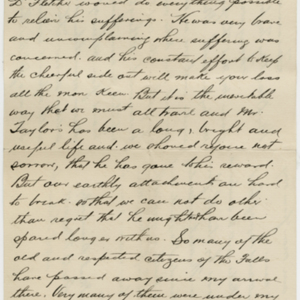 D. Father would do everything possible
to relieve his sufferings. He was very brave
and uncomplaining where suffering was
concerned. and his constant effort to keep
the cheerful side out will make your loss
all the more keen. But it is the inevitable
way that we must all travel and Mr.
Taylor's has been a long, bright and
useful life and we should rejoice not
sorrow, that he has gone to his reward.
But our earthly attachments are hard
to break. so that we can not do other
than regret that he might not have been
spared longer with us. So many of the
old and respected citizens of the Falls
have passed away since my arrival
there. Very many of them were under my